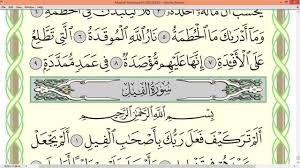 يَحْسَبُ أَنَّ مَالَهُۥٓ أَخْلَدَهُۥ ٣ كَلَّا لَيُنۢبَذَنَّ فِى ٱلْحُطَمَةِ ٤
وَمَآ أَدْرَىٰكَ مَا ٱلْحُطَمَةُ ٥ نَارُ ٱللَّهِ ٱلْمُوقَدَةُ ٦ ٱلَّتِى تَطَّلِعُ
عَلَى ٱلْأَفْـِٔدَةِ ٧ إِنَّهَا عَلَيْهِم مُّؤْصَدَةٌ ٨ فِى عَمَدٍ مُّمَدَّدَةٍۭ ٩
سُورَةُ الفِيلِ
بِسْمِ ٱللَّهِ ٱلرَّحْمَٰنِ ٱلرَّحِيمِ
أَلَمْ تَرَ كَيْفَ فَعَلَ رَبُّكَ بِأَصْحَٰبِ ٱلْفِيلِ ١ أَلَمْ يَجْعَلْ